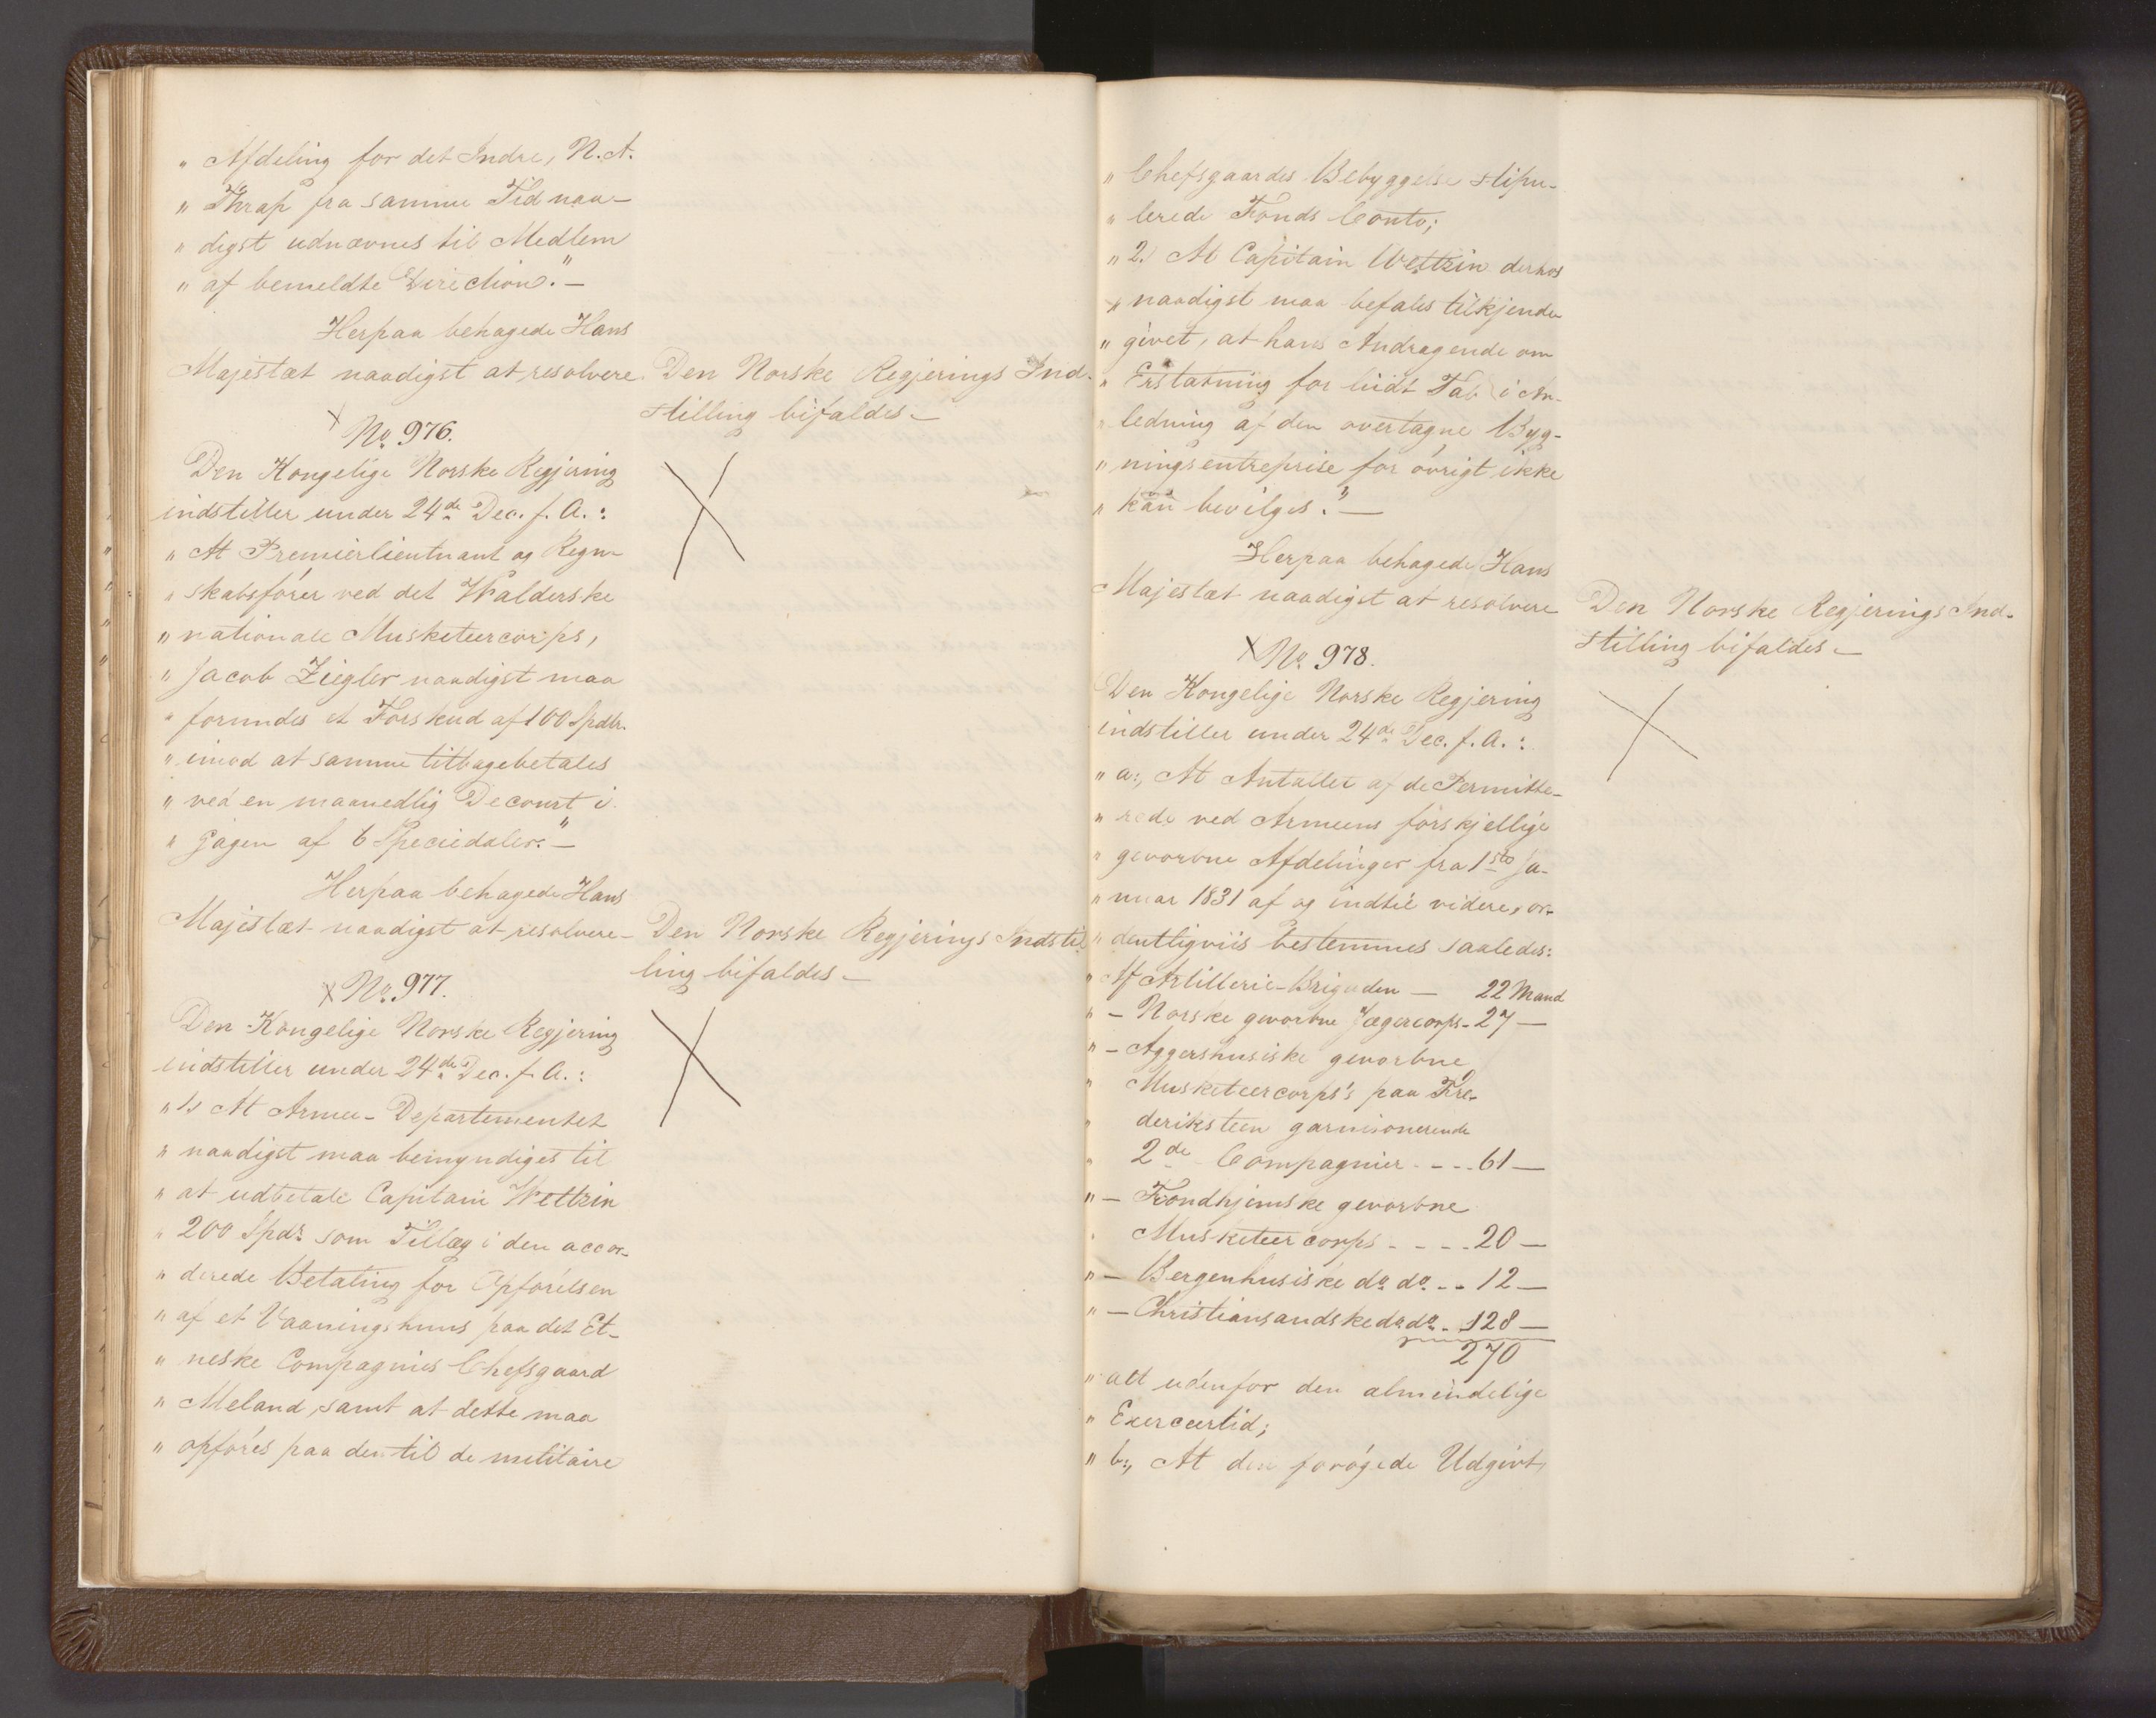 „ Afdeling for det Indre, N. A.
„ Thrap fra samme Tid naa-
„ digst udnævnes til Medlem
„ af bemeldte Direction." —
Herpaa behagede Hans
Majestæt naadigst at resolvere
Den Norske Regjerings Ind-
stilling bifaldes —
No. 976.
Den Kongelige Norske Regjering
indstiller under 24de Dec. f. A. :
„ At Premierlieutnant og Regn-
„ skabsfører ved det Walderske
„ nationale Musketeercorps,
„ Jacob Ziegler naadigst maa
„ forundes et Forskud af 100 Spdlr.
„ imod at samme tilbagebetales
„ ved en maanedlig Decourt i
„ Gagen af 6 Speciedaler." —
Herpaa behagede Hans
Majestæt naadigst at resolvere —
Den Norske Regjerings Indstil-
ling bifaldes —
No. 977.
Den Kongelige Norske Regjering
indstiller under 24de Dec. f. A. :
„ 1, At Armee-Departementet
„ naadigst maa bemyndiges til
„ at udbetale Capitain Weltzin
„ 200 Spdr. som Tillæg i den accor-
„ derede Betaling for Opførelsen
„ af et Vaaningshuus paa det Et-
„ neske Compagnies Chefsgaard
„ Meland, samt at dette maa
„ opføres paa den til de militaire
„ Chefsgaardes Bebyggelse stipu-
„ lerede Fonds Conto;
„ 2, At Capitain Weltzin derhos
„ naadigst maa befales tilkjende-
„ givet, at hans Andragende om
„ Erstatning for liidt Tab i An-
„ ledning af den overtagne Byg-
„ ningsentreprise for øvrigt ikke
„ kan bevilges." —
Herpaa behagede Hans
Majestæt naadigst at resolvere
Den Norske Regjerings Ind-
stilling bifaldes —
No. 978.
Den Kongelige Norske Regjering
indstiller under 24de Dec. f. A. :
„ a:, At Antallet af de Permitte-
„ rede ved Armeens forskjellige
„ gevorbne Afdelinger fra 1ste Ja-
„ nuar 1831 af og indtil videre, or-
„ dentligviis bestemmes saaledes:
„ Af Artillerie-Brigaden — 22 Mand
„ — Norske gevorbne Jægercorps - 27 —
„ — Aggershusiske gevorbne
„ Musketeercorps's paa Fre-
„ deriksteen garnisonerende
„ 2de Compagnier - - - 61 —
„ — Trondhjemske gevorbne
„ Musketeercorps - - - - 20 —
„ — Bergenhusiske do. do. - - 12 —
„ — Christiansandske do. do. - 128 —
270
„ alt udenfor den almindelige
„ Exerceertid;
„ b:, At den forøgede Udgivt,